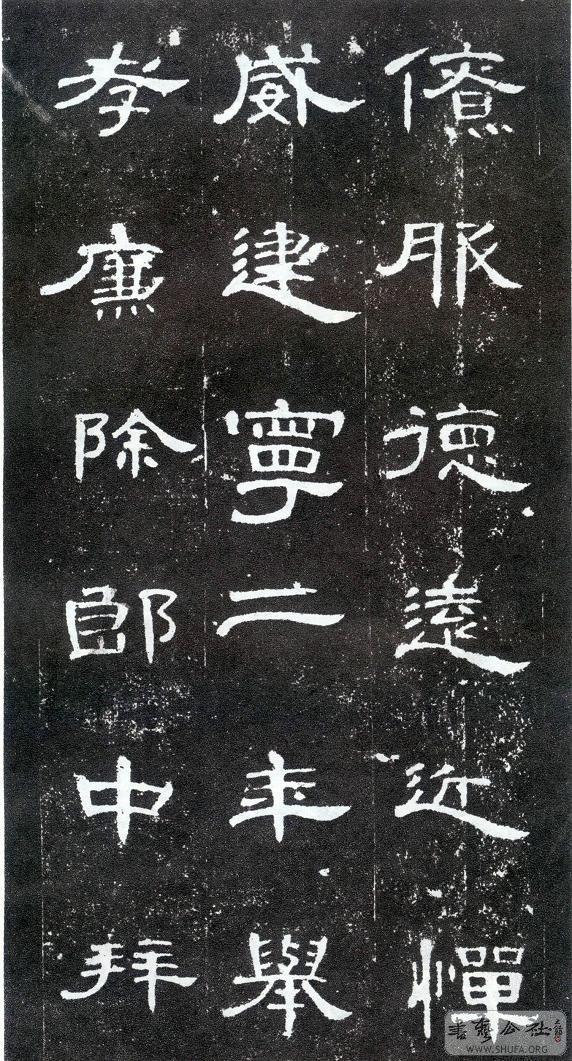 僚服德遠近憚
威建寧二年舉
孝廉除郎中拜
書藝公社
WWW.SHUFA.ORG